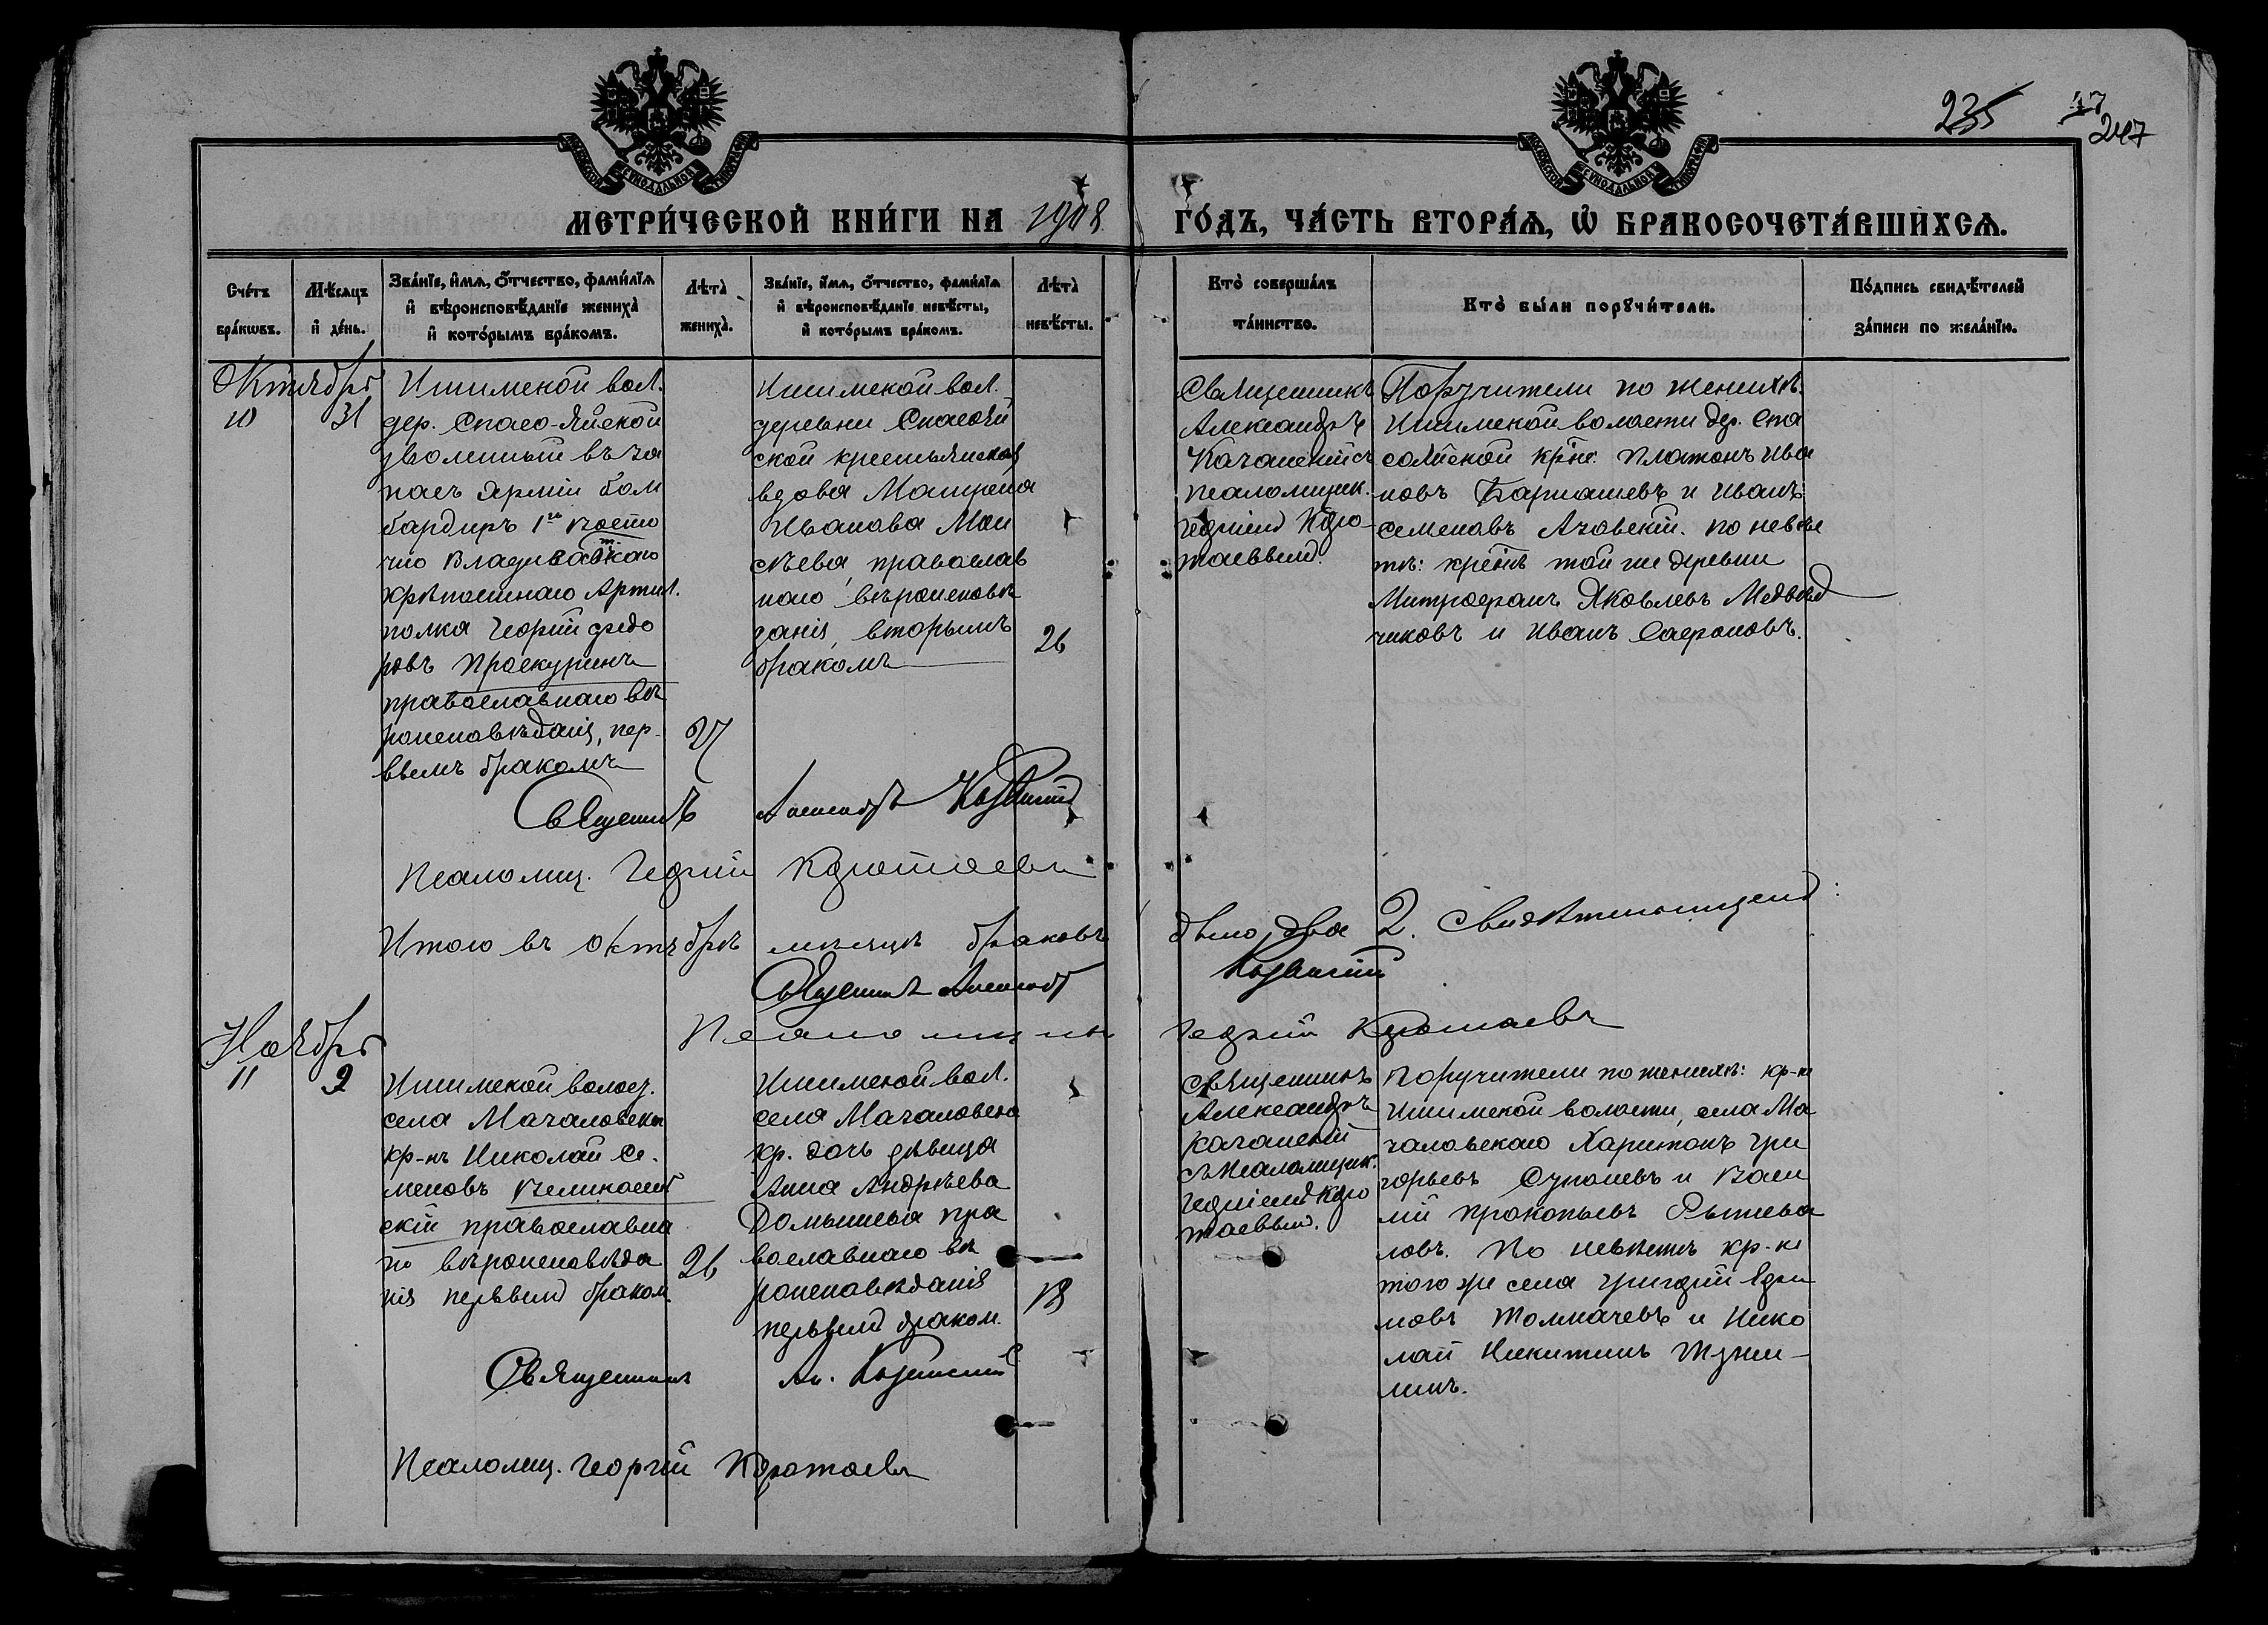 235 17
247
МОСКОВСКОЙ СѴНОДАЛЬНОЙ ТИПОГРАФІИ
МОСКОВСКОЙ СѴНОДАЛЬНОЙ ТИПОГРАФІИ
МЕТРИ́ЧЕСКОЙ КНИ́ГИ НА 1908 ГО́ДЪ, ЧА́СТЬ ВТОРА́Ѧ, Ѡ҆ БРАКОСОЧЕТА́ВШИХСѦ.
Сче́тъ
бра́кѡвъ.
Мѣ́сѧцъ
и҆ де́нь.
Зва́нїе, и҆́мѧ, ѻ҆́тчество, фами́лїѧ
и҆ вѣроисповѣ́данїе жениха̀
и҆ кото́рымъ бра́комъ.
Лѣ́та
жениха̀.
Зва́нїе, и҆́мѧ, ѻ҆́тчество, фами́лїѧ
и҆ вѣроисповѣ́данїе невѣ́сты,
и҆ кото́рымъ бра́комъ.
Лѣ́та
невѣ́сты.
Кто̀ соверша́лъ
та́инство.
Кто̀ бы́ли порꙋчи́тели.
По́дпись свидѣ́телей
за́писи по жела́нїю.
Октябрь
10 31
Ишимской вол.
дер. Спасо-Яйской
уволенный въ за
пасъ Арміи бом
бардиръ 1го Восто
чно Владивостокаго
крѣпостнаго Артил.
полка Георгій Федо
ровъ Проскуринъ
православнаго вѣ
роисповѣданія, пер-
вымъ бракомъ
27
Ишимской вол.
деревни Спасояй
ской крестьянская
вдова Матрена
Иванова Мои
сѣева, православ
наго вѣроисповѣ
данія, вторымъ
бракомъ
26
Священникъ
Александръ
Качанскій съ
псаломщик.
Георгіемъ Коро-
таевымъ.
Поручители по женихѣ:
Ишимской волости дер. Спа
сояйской кр-не: Платонъ Ива
новъ Барнашевъ и Иванъ
Семеновъ Азовскій. По невѣс
тѣ: кр-не той же деревни
Митрофанъ Яковлевъ Медвѣд
чиковъ и Иванъ Сафроновъ.
Священникъ Александръ
Псаломщ. Георгій Коротаевъ
Итого въ октябрѣ мѣсяцѣ браковъ было два 2. Свидѣтельствуемъ:
Священникъ Александръ
Псаломщикъ Георгій Коротаевъ
Ноябрь
11 2
Ишимской волос.
села Мачаловска
кр-нъ Николай Се-
меновъ Великосел
скій православна
го вѣроисповѣда
нія первымъ браком.
26
Ишимской вол.
села Мачаловска
кр. дочь дѣвица
Анна Андрѣева
Домышева пра
вославнаго вѣ
роисповѣданія
первымъ браком.
18
Священникъ
Александръ
Качанскій
съ псаломщик.
Георгіемъ Коро
таевымъ.
Поручители по женихѣ: кр-не
Ишимской волости, села Ма
чаловскаго Харитонъ Гри
горьевъ и Васи
лій Прокопьевъ
ловъ. По невѣстѣ кр-не
того же села Григорій
мовъ Толмачевъ и Нико
лай Никитинъ
линъ.
Священникъ Ал.
Псаломщ. Георгій Коротаевъ